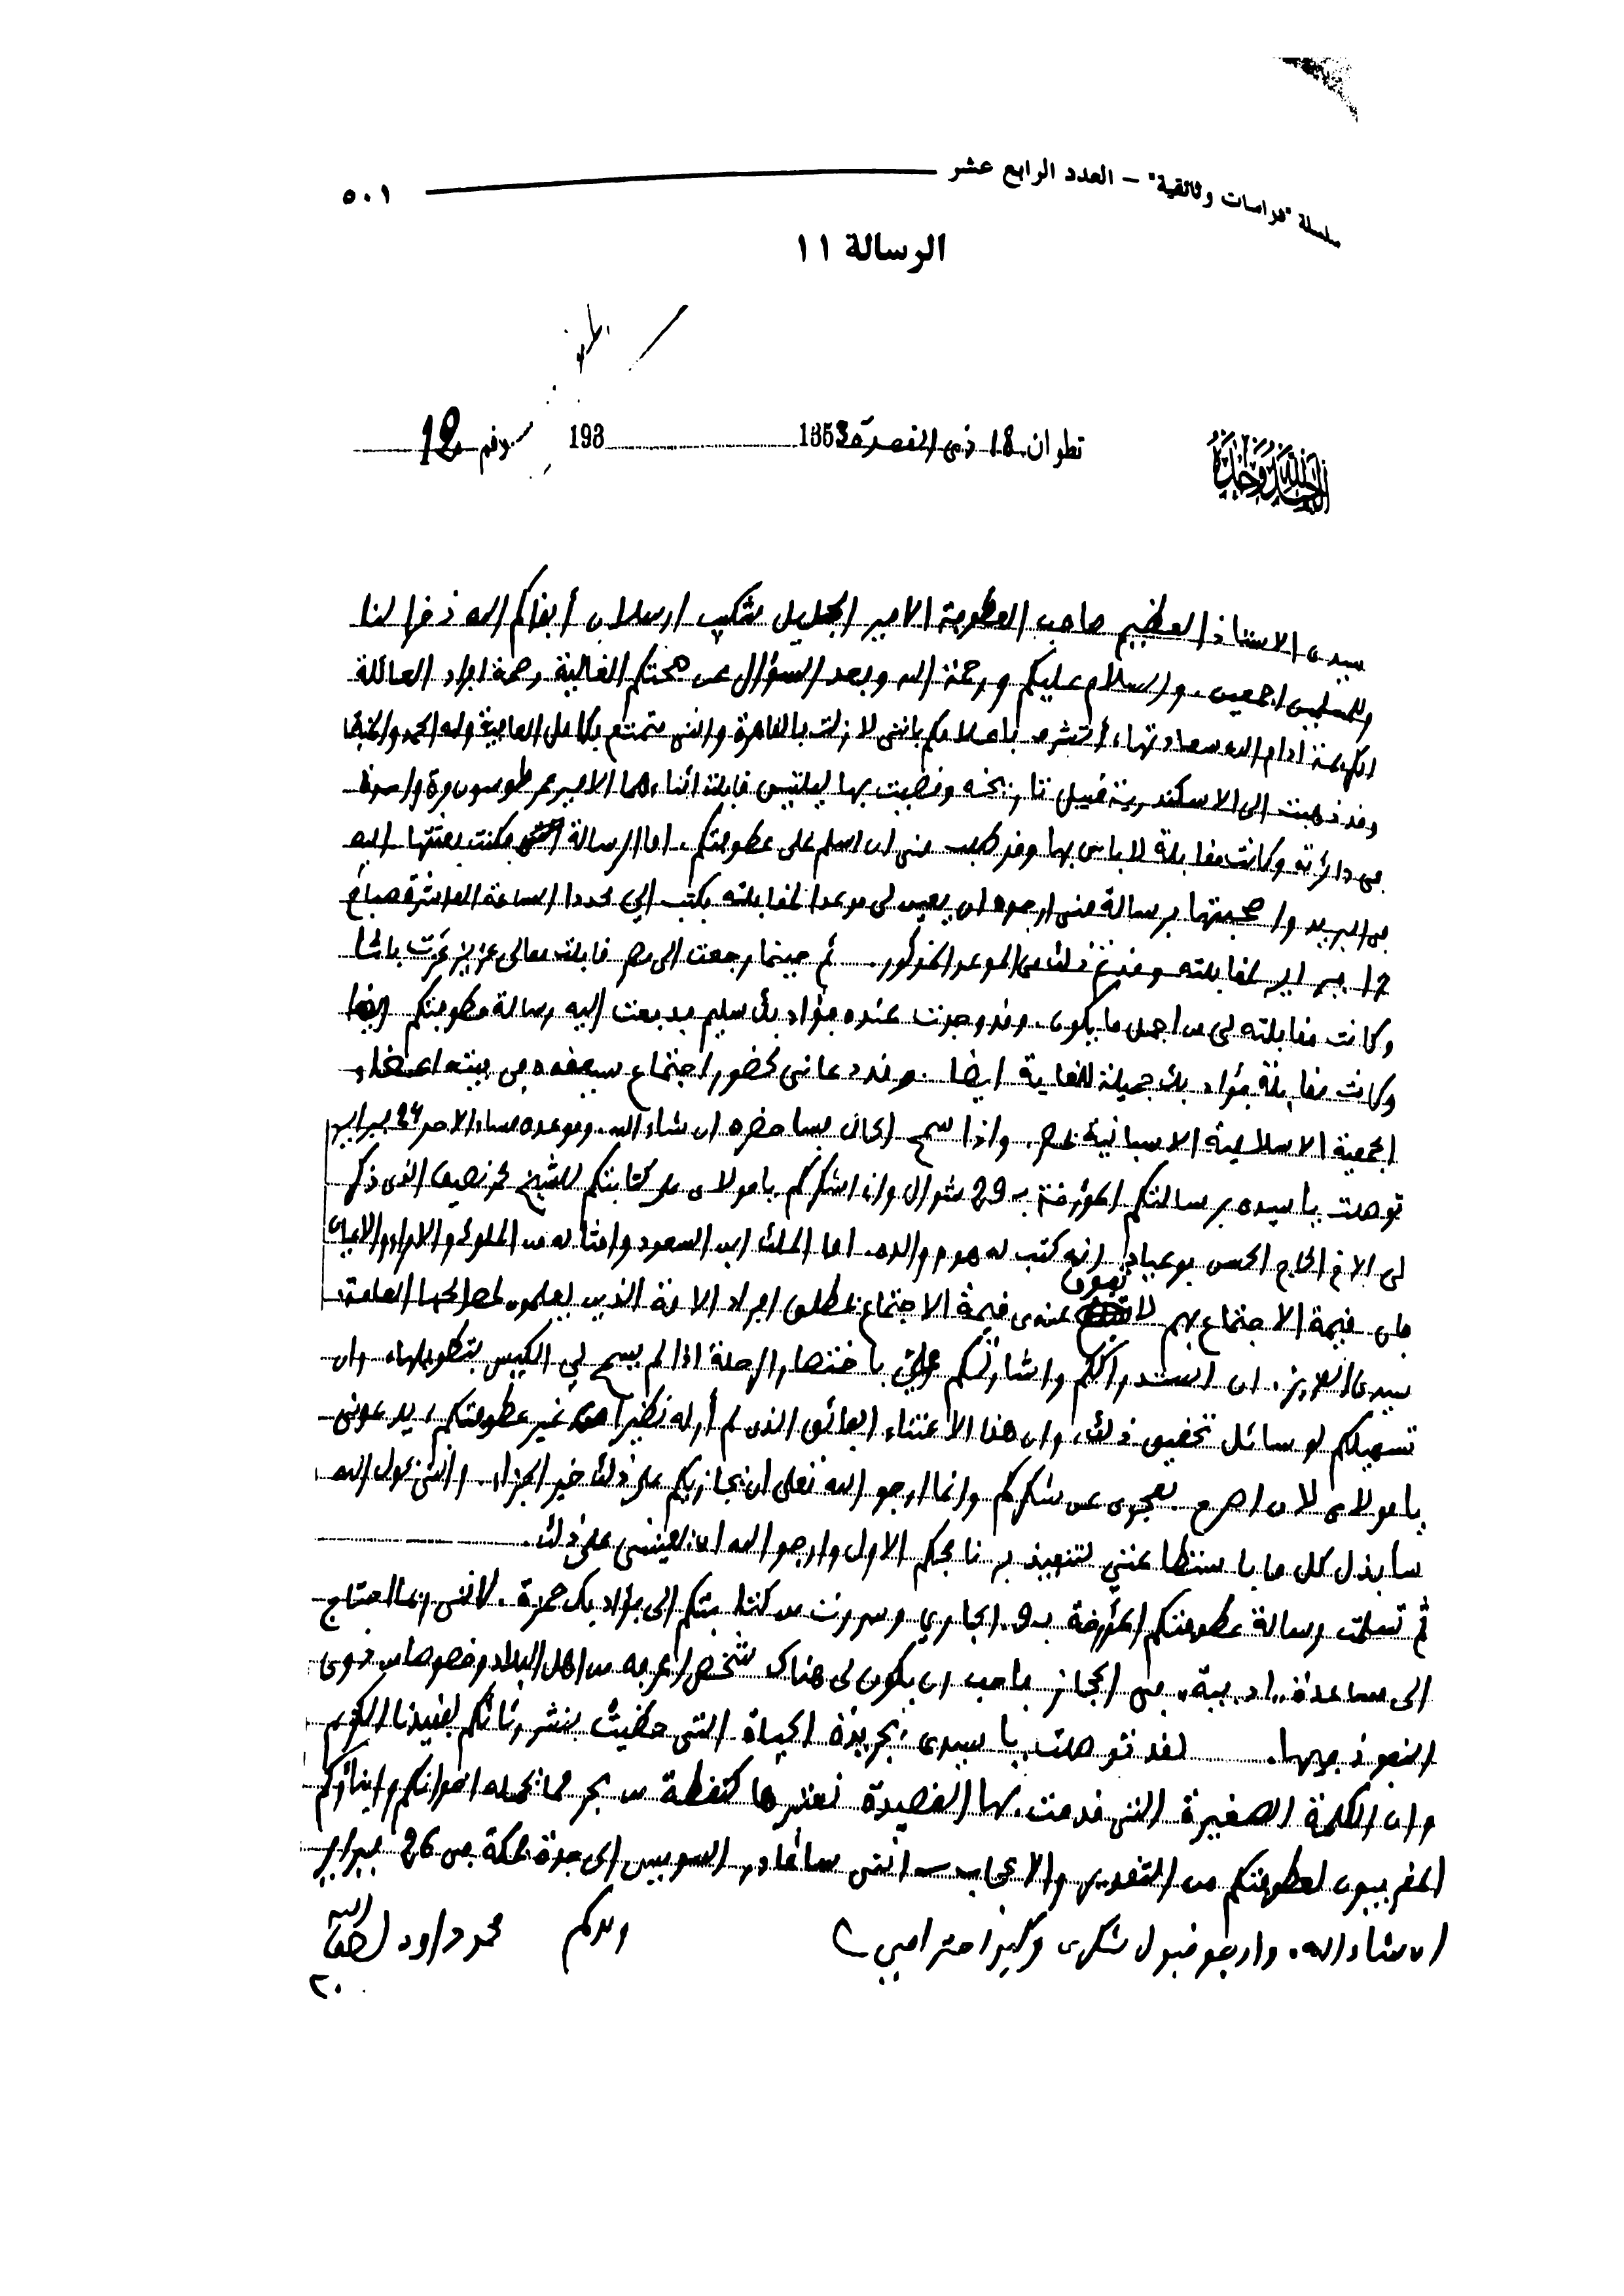 سلسلة "دراسات وثائقية" – العدد الرابع عشر
٥٠١
الرسالة ١١
الحمد لله وحده
تطوان 18 ذي القعدة 1353 193 رقم 12
سيدى الاستاذ العظيم صاحب العطوفة الامير الجليل شكيب ارسلان أبقاكم الله ذخرا لنا
وللمسلمين اجمعين. والسلام عليكم ورحمة الله وبعد السؤال عن صحتكم الغالية وصحة افراد العائلة
الكريمة ادام الله سعادتها، أتشرف باعلامكم بانني لا زلت بالقاهرة وانني متمتع بكامل العافية وله الحمد
وقد ذهبت الى الاسكندرية قبيل تاريخه وقضيت بها ليلتين قابلت اثناءهما الامير عمر طوسون مرة واحدة
في دائرته وكانت مقابلة لا باس بها وقد طلب مني ان اسلم على عطوفتكم. اما الرسالة فكنت بعثتها اليه
في البريد واصحبتها برسالة مني ارجوه ان يعين لي موعدا لمقابلته فكتب الي محددا الساعة العاشرة صباح
12 فبراير لمقابلته وقد تم ذلك في الموعد المذكور. ثم حينما رجعت الى مصر قابلت معالي عزيز عزت باشا
وكانت مقابلته لي من اجمل ما يكون. وقد وجدت عنده فؤاد بك سليم فدفعت اليه رسالة عطوفتكم
وكانت مقابلة فؤاد بك جميلة للغاية ايضا. وقد دعاني لحضور اجتماع سيعقده في بيته اعضاء
الجمعية الاسلامية الاسبانية بمصر. واذا سمح الحال فساحضره ان شاء الله. وموعده مساء الاحد 24 فبراير
توصلت يا سيدي برسالتكم المؤرخة بـ 29 شوال وانا اشكركم يا مولاي على كتابتكم للشيخ محمد نصيف الذي ذكر
لي الاخ الحاج الحسن بوعياد انه كتب له هو ووالده. اما الملك ابن السعود وامثاله من الملوك والامراء والاعيان
فان قيمة الاجتماع بهم لا تفوق عندي قيمة الاجتماع بمطلق افراد الامة الذين يعلمون لمصالحها العامة.
سيدى العزيز. ان استدراككم واشارتكم علي باختصار الرحلة اذا لم يسمح لي الكيس بتطويلها، وان
تسهيلكم لوسائل تحقيق ذلك، وان هذا الاعتناء الفائق الذي لم أر له نظيرا من غير عطوفتكم، يدعوني
يا مولاي لان اصرح بعجزي عن شكركم وانما ارجو الله تعلى ان يجازيكم على ذلك خير الجزاء. وانني بحول الله
سأبذل كل ما باستطاعتي لتنفيذ برنامجكم الاول وارجو الله ان يعينني على ذلك.
ثم تسلمت رسالة عطوفتكم المؤرخة بـ 9 الجاري وسررت من كتابتكم الى فؤاد بك حمزة. لانني ربما احتاج
الى مساعدة "ادبية" في الحجاز فاحب ان يكون لي هناك شخص اعرفه من اهل البلاد وخصوصا من ذوي
النفوذ فيها. لقد توصلت يا سيدى بجريدة الحياة التي حظيت بنشر رثائكم لفقيدنا الكريم
وان الكلمة الصغيرة التي قدمت بها القصيدة نعتبرها كنقطة من بحر مما يحمله اخوانكم وابناؤكم
المغربيون لعطوفتكم من التقدير والاعجاب – انني سأغادر السويس الى جدة فمكة في 26 فبراير
ان شاء الله. وارجو قبول شكرى وكبير احترامي ولدكم محمد داود لطف الله
٢٠